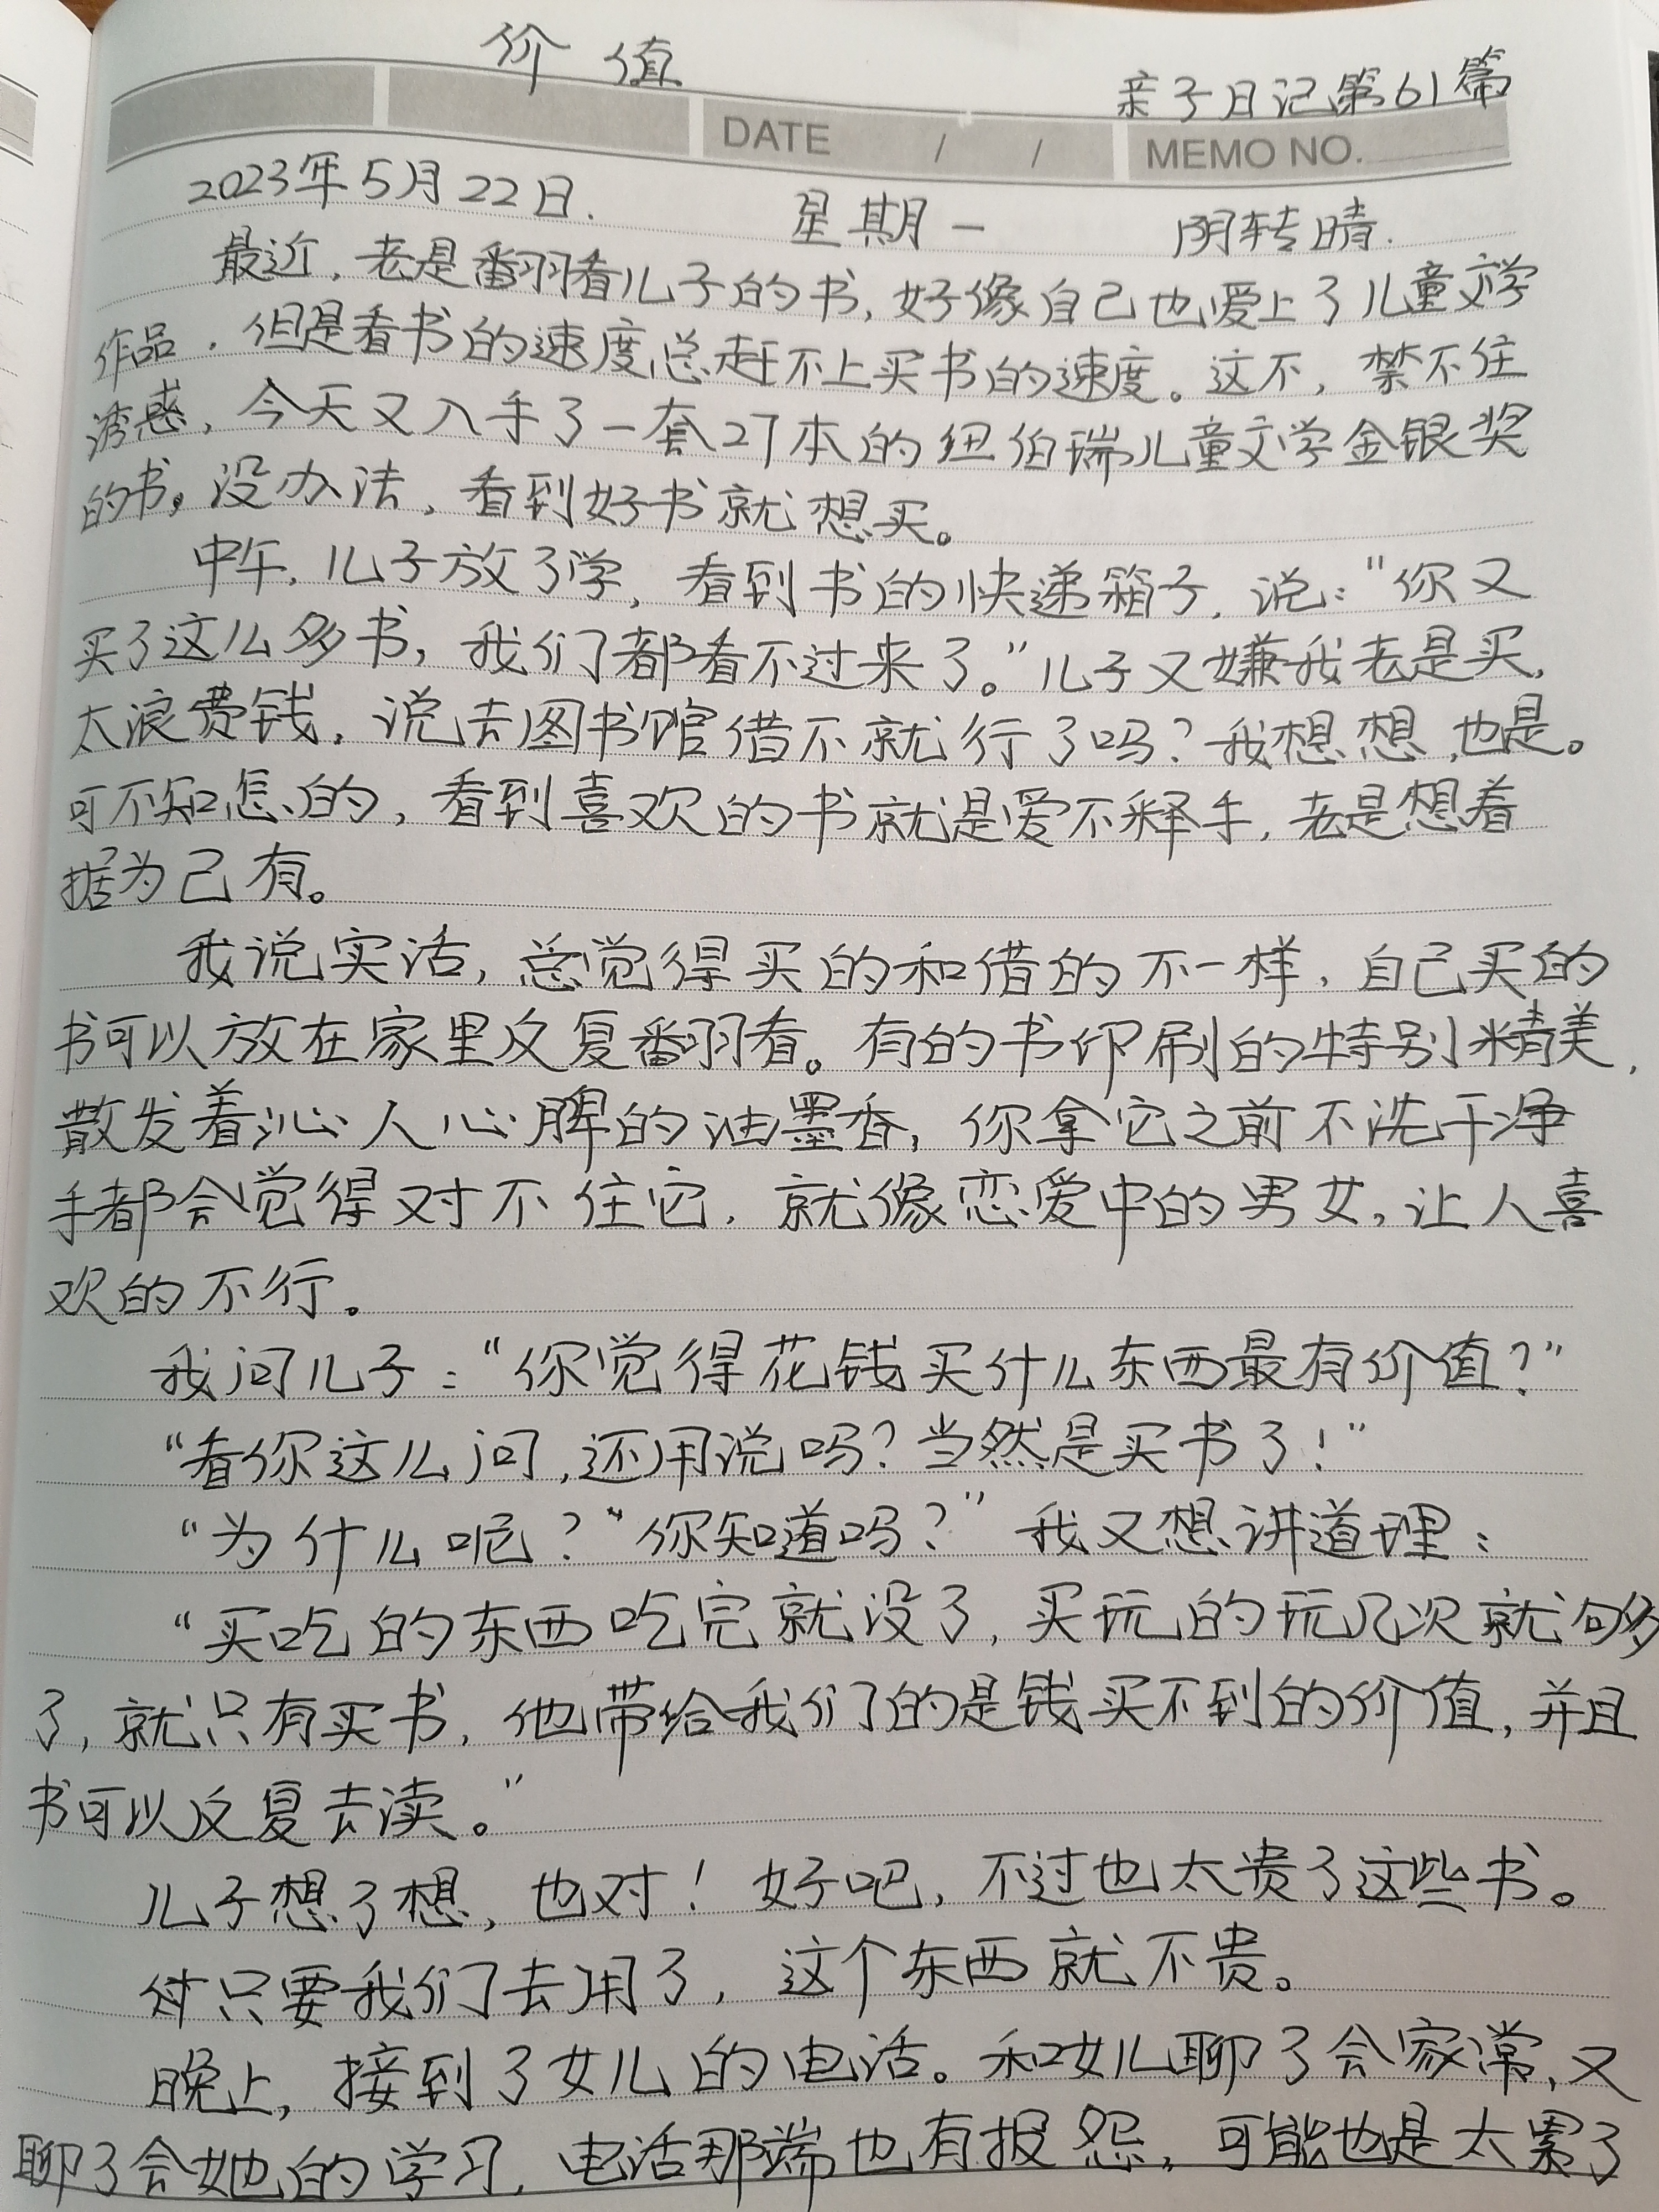 价值
亲子日记第61篇
DATE / /
MEMO NO.
2023年5月22日. 星期一 阴转晴.
最近,老是翻看儿子的书,好像自己也爱上了儿童文学
作品.但是看书的速度总赶不上买书的速度。这不,禁不住
诱惑,今天又入手了一套27本的纽伯瑞儿童文学金银奖
的书。没办法,看到好书就想买。
中午,儿子放了学,看到书的快递箱子,说:"你又
买了这么多书,我们都看不过来了。"儿子又嫌我老是买,
太浪费钱,说去图书馆借不就行了吗?我想想,也是。
可不知怎的,看到喜欢的书就是爱不释手,老是想着
据为己有。
我说实话,总觉得买的和借的不一样,自己买的
书可以放在家里反复翻看。有的书印刷的特别精美,
散发着沁人心脾的油墨香,你拿它之前不洗干净
手都会觉得对不住它,就像恋爱中的男女,让人喜
欢的不行。
我问儿子:"你觉得花钱买什么东西最有价值?"
"看你这么问,还用说吗?当然是买书了!"
"为什么呢?""你知道吗?"我又想讲道理:
"买吃的东西吃完就没了,买玩的玩几次就够
了,就只有买书,他带给我们的是钱买不到的价值,并且
书可以反复去读。"
儿子想了想,也对!好吧,不过也太贵了这些书。
只要我们去用了,这个东西就不贵。
晚上,接到了女儿的电话。和女儿聊了会家常,又
聊了会她的学习,电话那端也有报怨。可能也是太累了